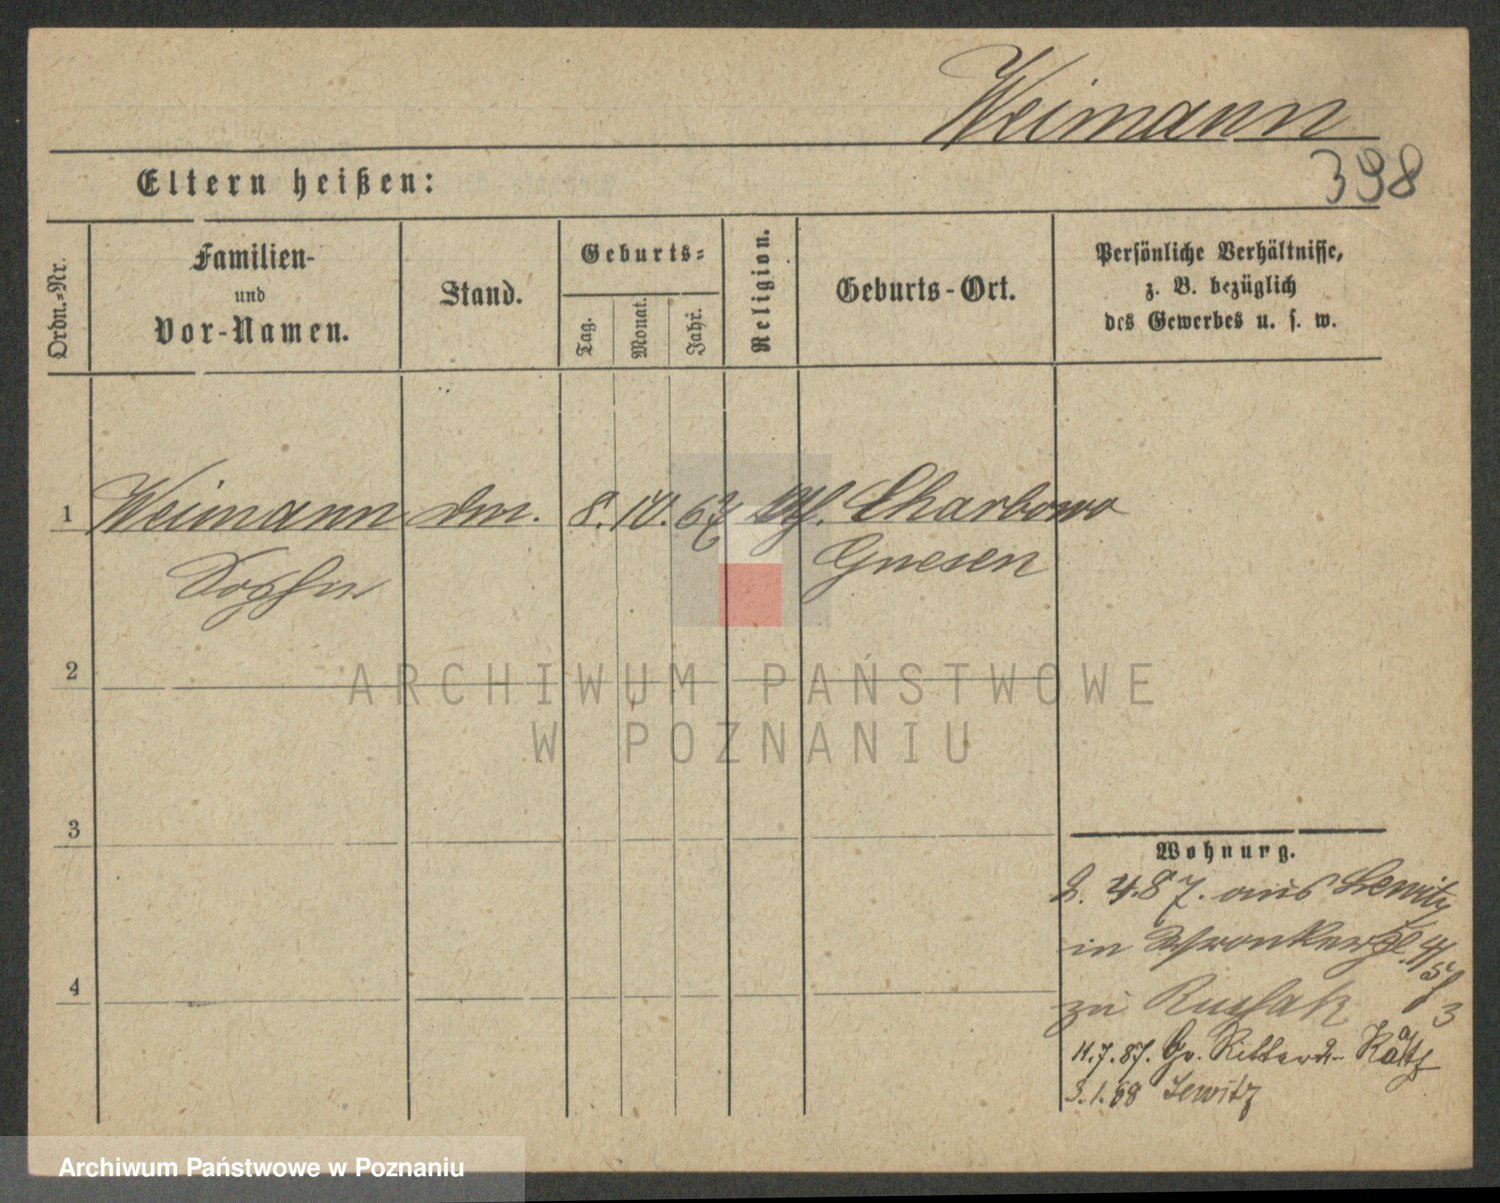 Weimann
398
Eltern heißen:
Ordn.-Nr.
Familien-
und
Vor-Namen.
Stand.
Geburts-
Tag.
Monat.
Jahr.
Religion.
Geburts-Ort.
Persönliche Verhältnisse,
z. B. bezüglich
des Gewerbes u. s. w.
1 Weimann 8. 10. 67 Charbowo
Sophie Gnesen
2
ARCHIWUM PAŃSTWOWE
W POZNANIU
3
Wohnung.
2. 4. 87. aus Lewitz
in
4
zu
11.7.87. Gr. Ritterst-
3.1.88 Lewitz
Archiwum Państwowe w Poznaniu